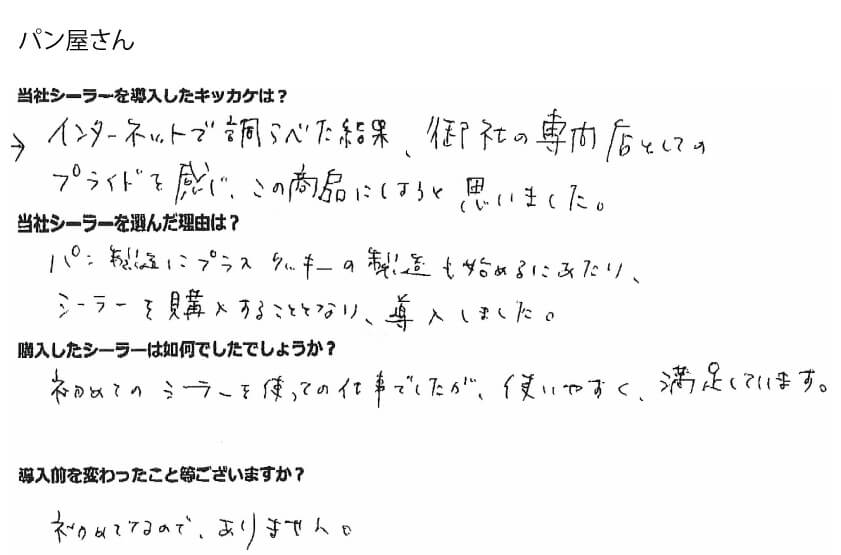 パン屋さん
当社シーラーを導入したキッカケは？
→ インターネットで調らべた結果、御社の専門店としての
プライドを感じ、この商品にしようと思いました。
当社シーラーを選んだ理由は？
パン製造にプラスクッキーの製造も始めるにあたり、
シーラーを購入することとなり、導入しました。
購入したシーラーは如何でしたでしょうか？
初めてのシーラーを使っての仕事でしたが、使いやすく、満足しています。
導入前を変わったこと等ございますか？
初めてなので、ありません。